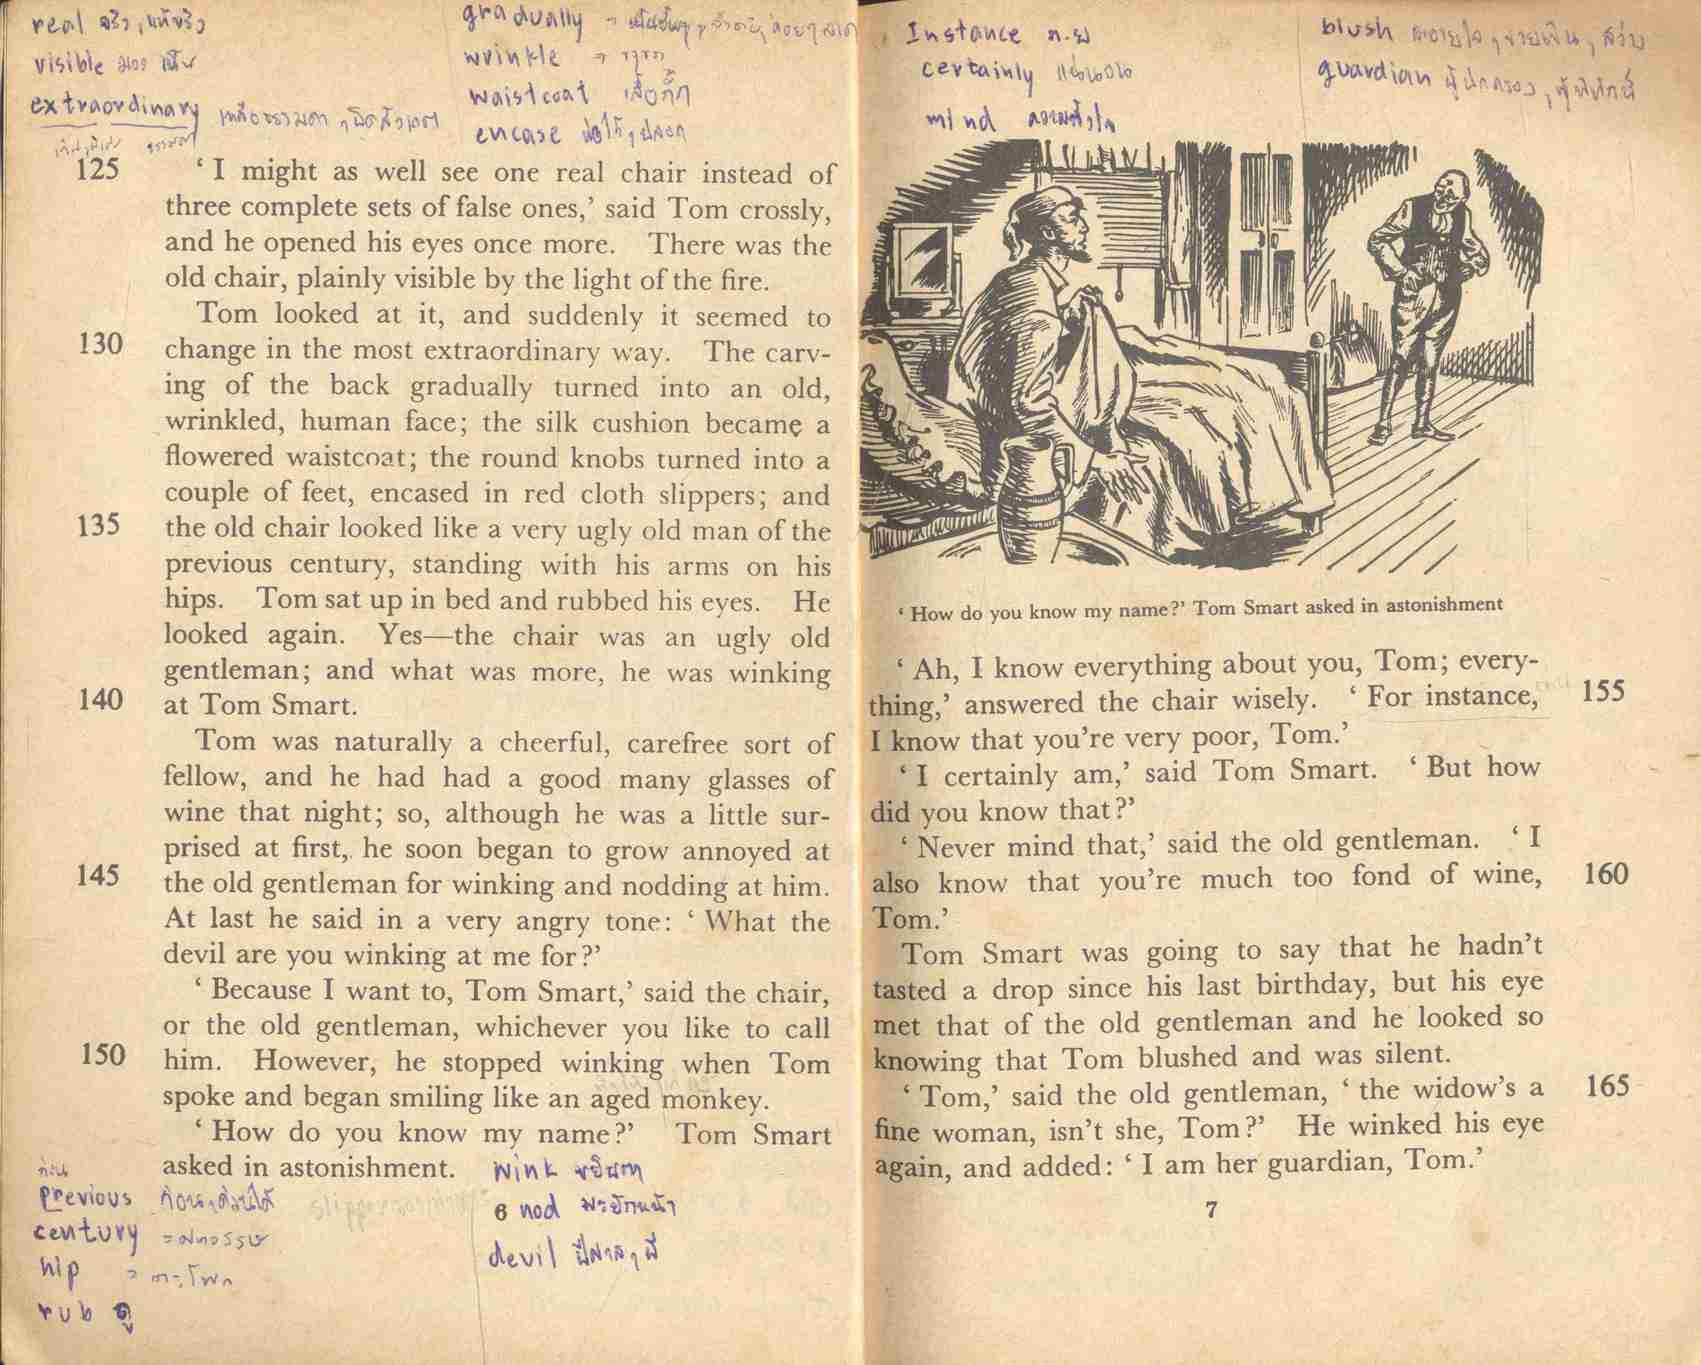 real จริง, แท้จริง
visible มองเห็น
extraordinary เหลือธรรมดา, ผิดสังเกต
gradually
wrinkle =
waistcoat เสื้อกั๊ก
encase ห่อไว้, ปลอก
125 ‘ I might as well see one real chair instead of
three complete sets of false ones,’ said Tom crossly,
and he opened his eyes once more. There was the
old chair, plainly visible by the light of the fire.
Tom looked at it, and suddenly it seemed to
130 change in the most extraordinary way. The carv-
ing of the back gradually turned into an old,
wrinkled, human face; the silk cushion became a
flowered waistcoat; the round knobs turned into a
couple of feet, encased in red cloth slippers; and
135 the old chair looked like a very ugly old man of the
previous century, standing with his arms on his
hips. Tom sat up in bed and rubbed his eyes. He
looked again. Yes—the chair was an ugly old
gentleman; and what was more, he was winking
140 at Tom Smart.
Tom was naturally a cheerful, carefree sort of
fellow, and he had had a good many glasses of
wine that night; so, although he was a little sur-
prised at first, he soon began to grow annoyed at
145 the old gentleman for winking and nodding at him.
At last he said in a very angry tone: ‘ What the
devil are you winking at me for?’
‘ Because I want to, Tom Smart,’ said the chair,
or the old gentleman, whichever you like to call
150 him. However, he stopped winking when Tom
spoke and began smiling like an aged monkey.
‘ How do you know my name?’ Tom Smart
asked in astonishment.
wink ขยิบตา
ก่อน
previous ก่อน,
century =
hip = ตะโพก
rub ถู
6 nod พยักหน้า
devil ปีศาจ, ผี
Instance
certainly แน่นอน
mind ความตั้งใจ
blush
guardian ผู้ปกครอง, ผู้พิทักษ์
‘ How do you know my name?’ Tom Smart asked in astonishment
‘ Ah, I know everything about you, Tom; every-
thing,’ answered the chair wisely. ‘ For instance, 155
I know that you’re very poor, Tom.’
‘ I certainly am,’ said Tom Smart. ‘ But how
did you know that?’
‘ Never mind that,’ said the old gentleman. ‘ I
also know that you’re much too fond of wine, 160
Tom.’
Tom Smart was going to say that he hadn’t
tasted a drop since his last birthday, but his eye
met that of the old gentleman and he looked so
knowing that Tom blushed and was silent.
‘ Tom,’ said the old gentleman, ‘ the widow’s a 165
fine woman, isn’t she, Tom?’ He winked his eye
again, and added: ‘ I am her guardian, Tom.’
7